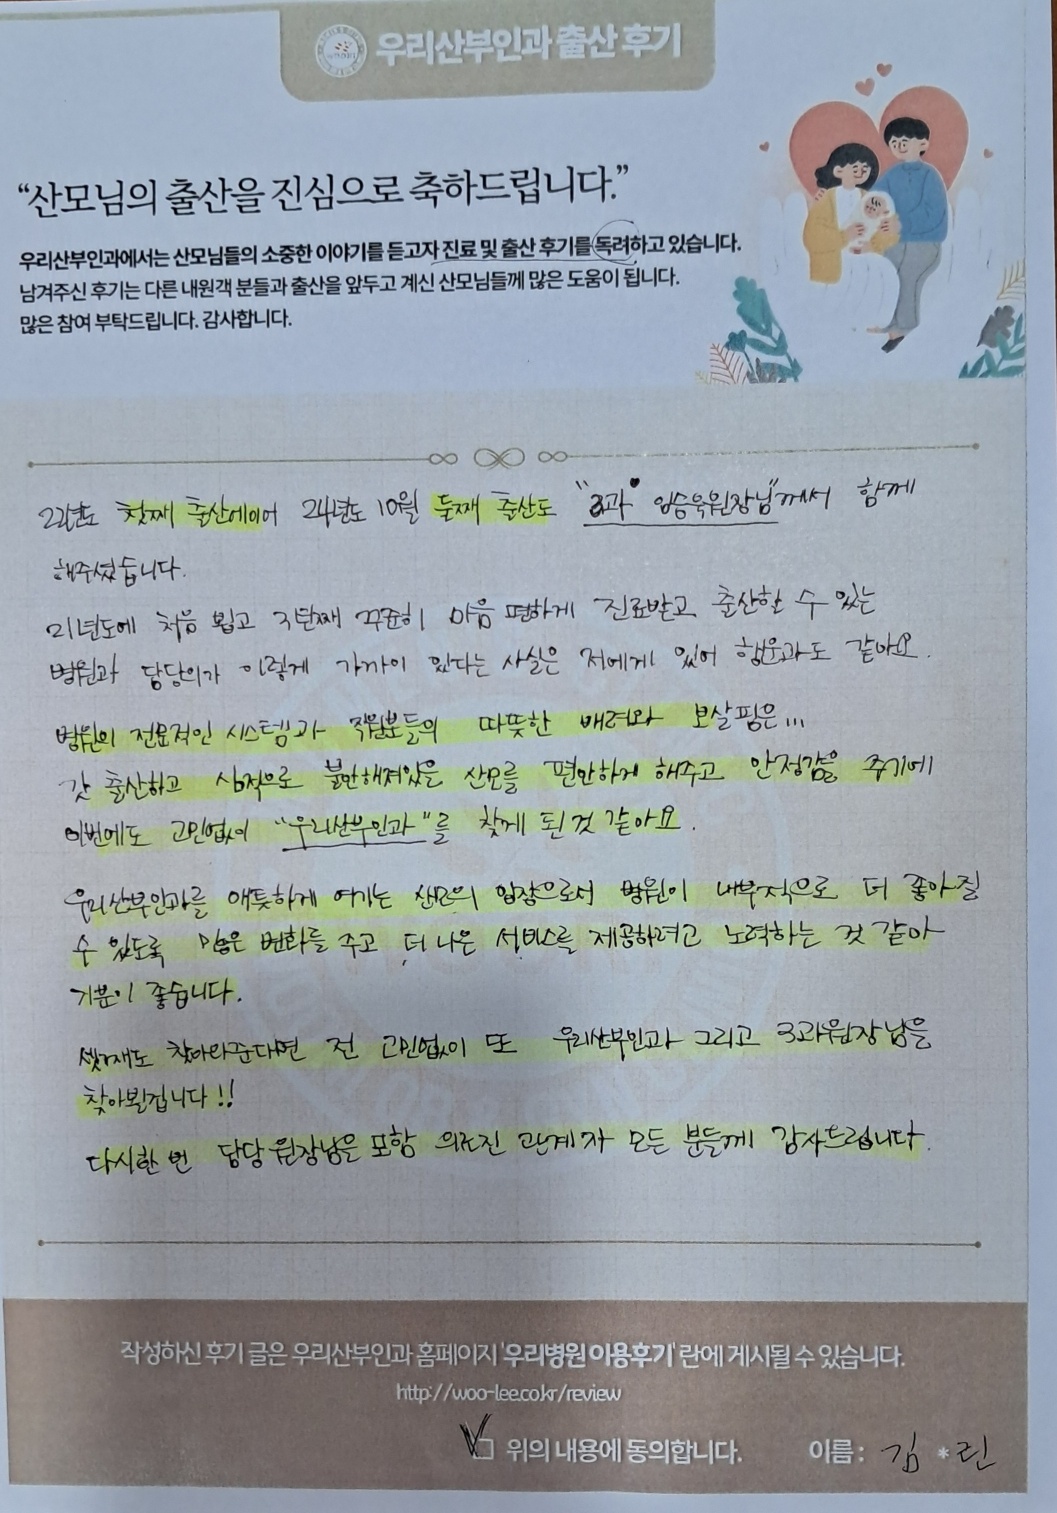 우리산부인과 출산 후기
“산모님의 출산을 진심으로 축하드립니다.”
우리산부인과에서는 산모님들의 소중한 이야기를 듣고자 진료 및 출산 후기를 독려하고 있습니다.
남겨주신 후기는 다른 내원객 분들과 출산을 앞두고 계신 산모님들께 많은 도움이 됩니다.
많은 참여 부탁드립니다. 감사합니다.
22년도 첫째 출산에이어 24년도 10월 둘째 출산도 "3과 임승욱원장님"께서 함께
해주셨습니다.
21년도에 처음 뵙고 3년째 꾸준히 마음 편하게 진료받고 출산할 수 있는
병원과 담당의가 이렇게 가까이 있다는 사실은 저에게 있어 행운과도 같아요.
병원의 전문적인 시스템과 직원분들의 따뜻한 배려와 보살핌은...
갓 출산하고 심적으로 불안해져있을 산모를 편안하게 해주고 안정감을 주기에
이번에도 고민없이 "우리산부인과"를 찾게 된 것 같아요.
우리산부인과를 애틋하게 여기는 산모의 입장으로서 병원이 내부적으로 더 좋아질
수 있도록 많은 변화를 주고, 더 나은 서비스를 제공하려고 노력하는 것 같아
기분이 좋습니다.
셋째도 찾아와준다면 전 고민없이 또 우리산부인과 그리고 3과원장님을
찾아뵐겁니다!!
다시한 번 담당 원장님을 포함 의료진 관계자 모든 분들께 감사드립니다.
작성하신 후기 글은 우리산부인과 홈페이지 '우리병원 이용후기' 란에 게시될 수 있습니다.
http://woo-lee.co.kr/review
위의 내용에 동의합니다. 이름 : 김 * 린